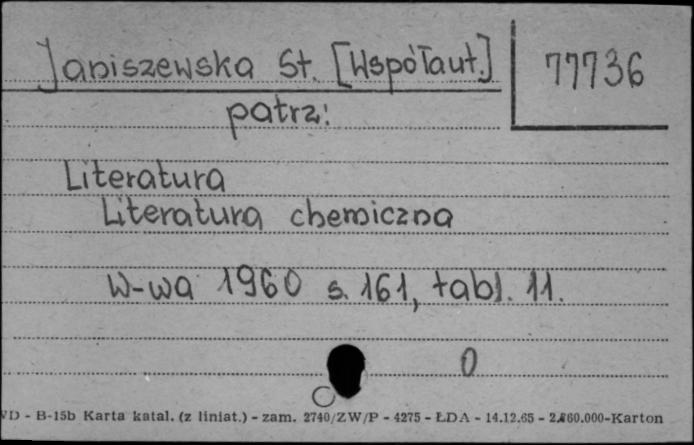 Janiszewska St. [Współaut.] 77736
patrz:
Literatura
Literatura chemiczna
W-wa 1960 s. 161, tabl. 11.
0
VD - B-15b Karta katal. (z liniat.) - zam. 2740/ZW/P - 4275 - ŁDA - 14.12.65 - 2.860.000-Karton